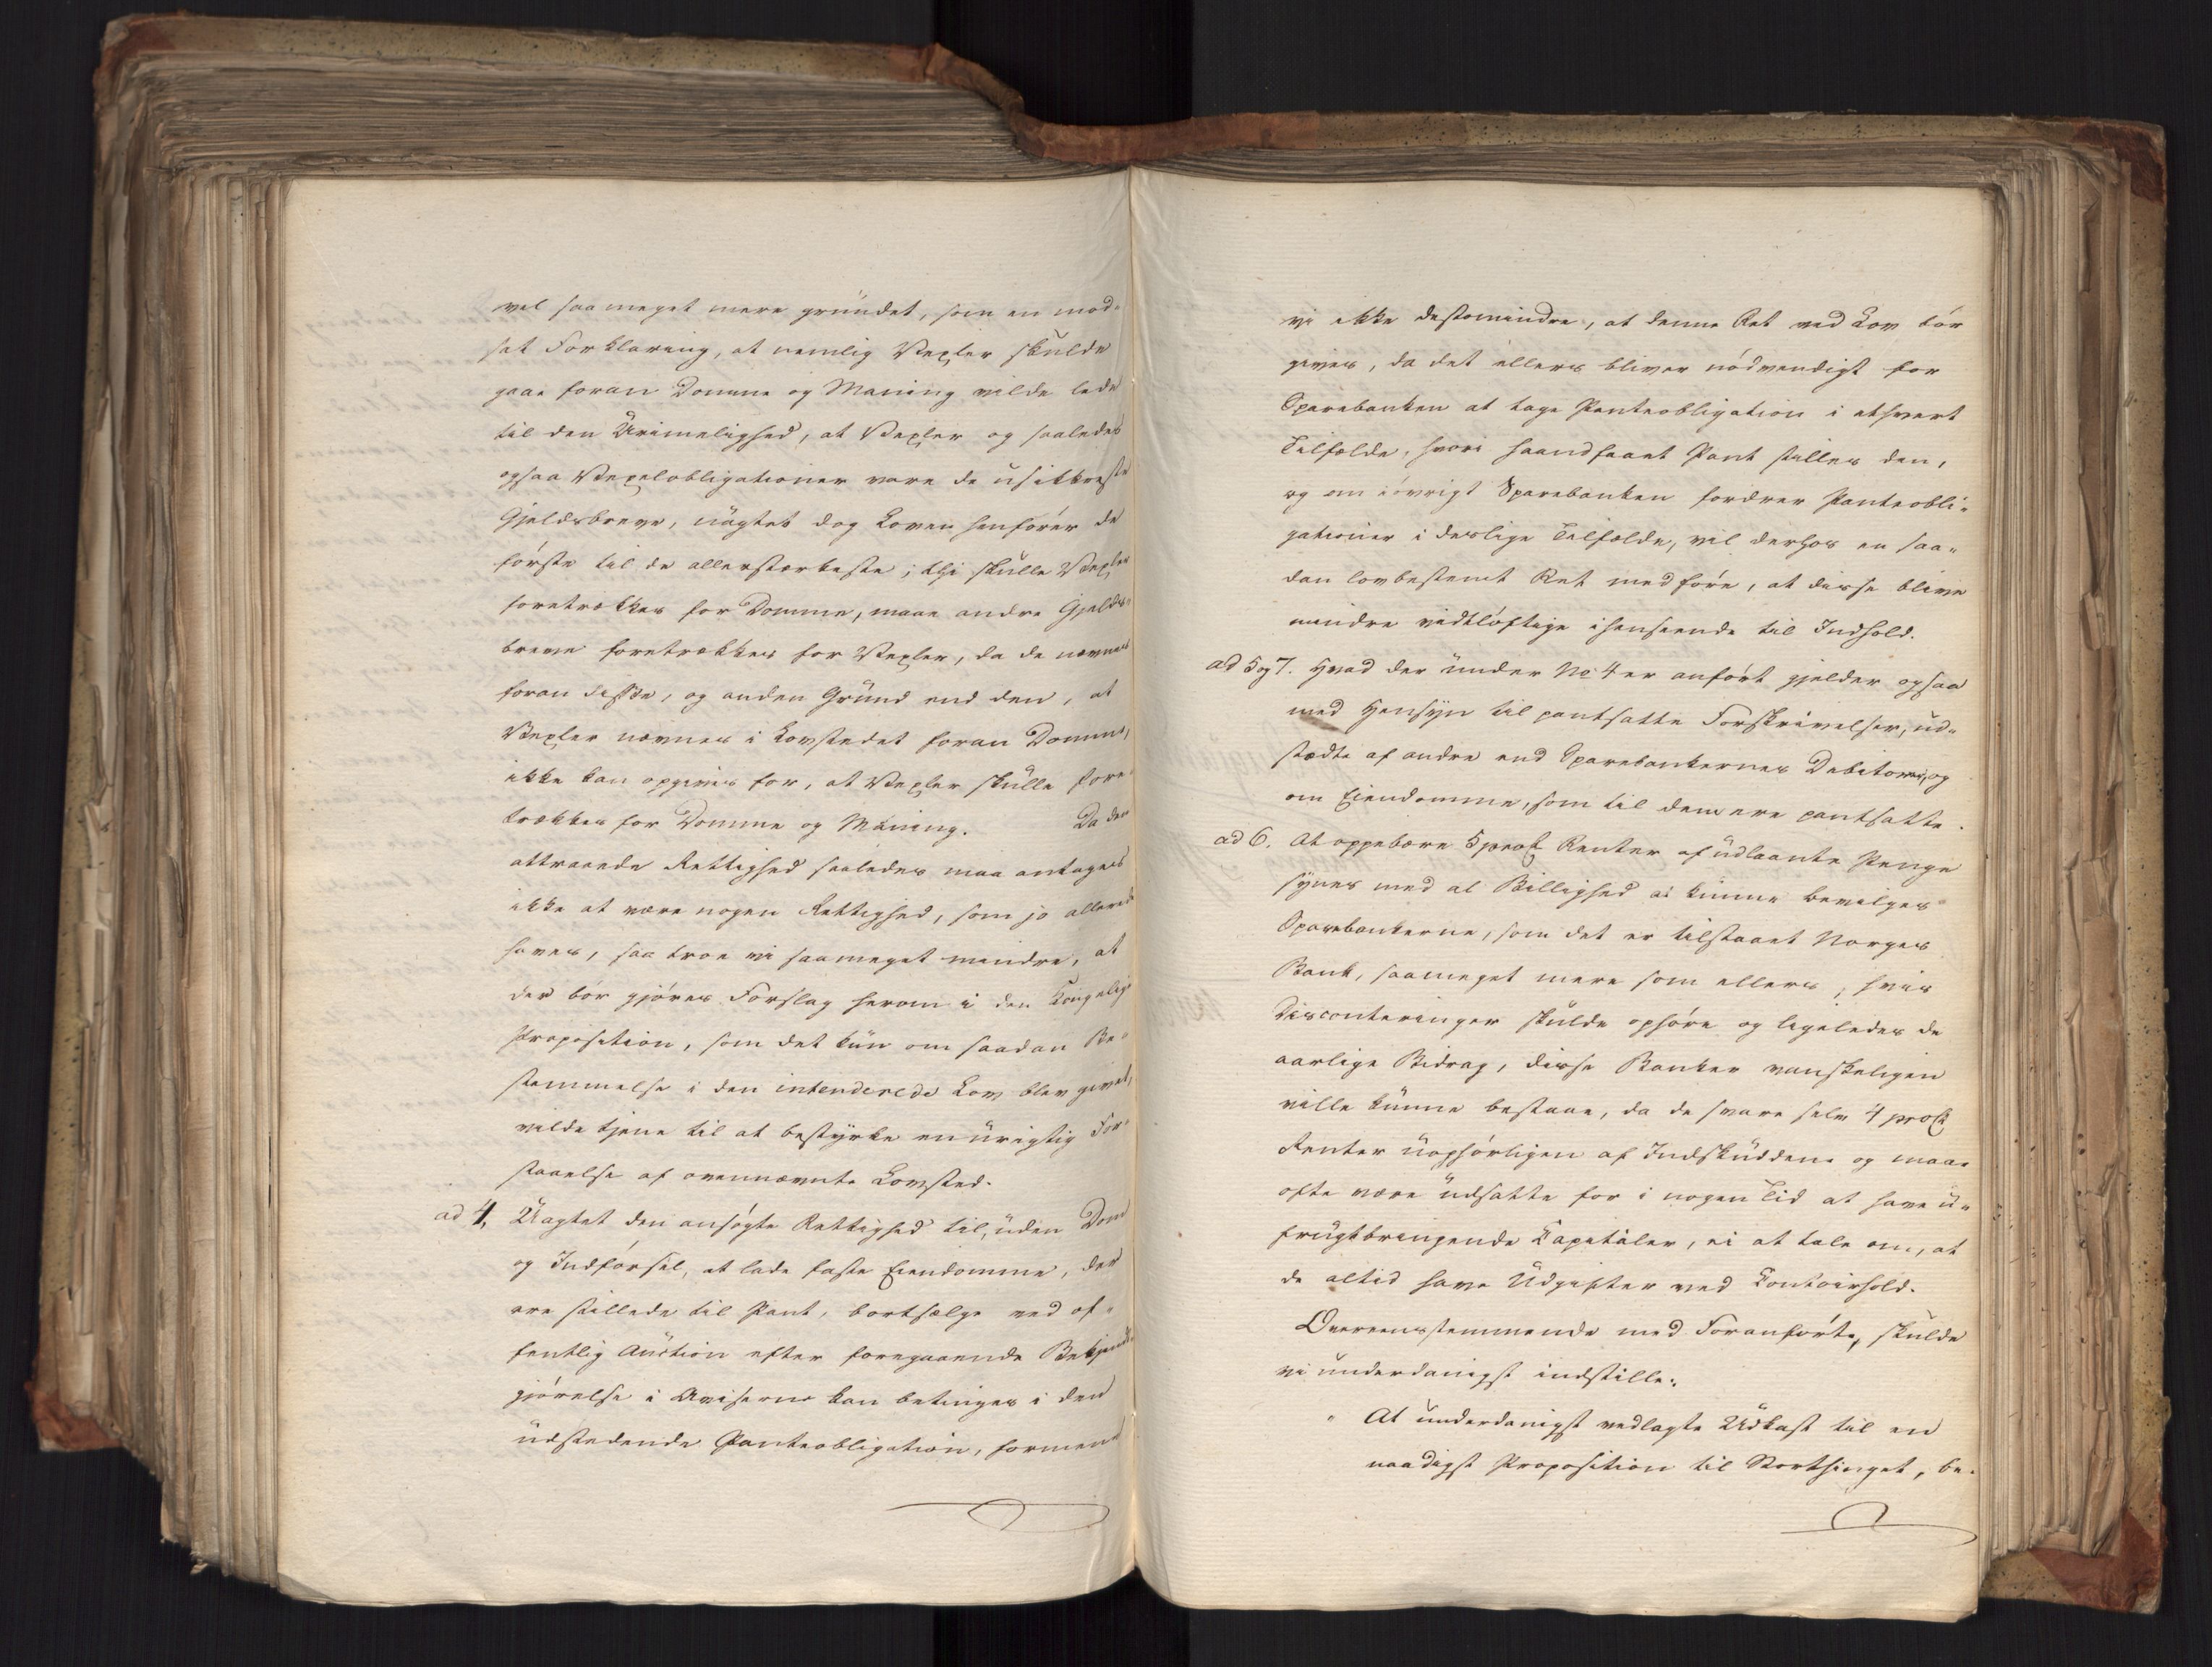 vel saa meget mere grundet, som en mod-
sat Forklaring, at nemlig Vexler skulde
gaae foran Domme og Maning vilde lede
til den Urimelighed, at Vexler og saaledes
ogsaa Vexelobligationer vare de usikkreste
Gjeldsbreve, uagtet dog Loven henförer de
förste til de allerstærkeste; thi skulle Vexler
foretrækkes for Domme, maae andre Gjelds-
breve foretrækkes for Vexler, da de nævnes
foran disse, og anden Grund end den, at
Vexler nævnes i Lovstedet foran Domme,
ikke kan opgives for, at Vexler skulle fore-
trækkes for Domme og Maning. Da den
attraaede Rettighed saaledes maa antages
ikke at være nogen Rettighed, som jo allerede
haves, saa troe vi saameget mindre, at
der bör gjöres Forslag herom i den Kongelige
Proposition, som det kun om saadan Be-
stemmelse i den intenderede Lov blev givet,
vilde tjene til at bestyrke en urigtig For-
staaelse af ovennævnte Lovsted.
ad 4. Uagtet den ansögte Rettighed til, uden Dom
og Indförsel, at lade faste Eiendomme, der
ere stillede til Pant, bortsælge ved of-
fentlig Auction efter foregaaende Bekjendt-
gjörelse i Aviserne kan betinges i den
udstedende Panteobligation, formene
vi ikke destomindre, at denne Ret ved Lov bör
gives, da det ellers bliver nödvendigt for
Sparebanken at tage Panteobligation i ethvert
Tilfælde, hvori haandfaaet Pant stilles den,
og om iövrigt Sparebanken fordrer Panteobli-
gationer i deslige Tilfælde, vil derhos en saa-
dan lovbestemt Ret medföre, at disse blive
mindre vidtlöftige ihenseende til Indhold.
ad 5 og 7. Hvad der under No 4 er anfört gjelder ogsaa
med Hensyn til pantsatte Forskrivelser, ud-
stædte af andre end Sparebankernes Debitorer, og
om Eiendomme, som til dem ere pantsatte.
ad 6. At oppebære 5 proCt Renter af udlaante Penge
synes med al Billighed at kunne bevilges
Sparebankerne, som det er tilstaaet Norges
Bank, saameget mere som ellers, hvis
Disconteringer skulde ophöre og ligeledes de
aarlige Bidrag, disse Banker vanskeligen
ville kunne bestaae, da de svare selv 4 proCt
Renter uophörligen af Indskuddene og maae
ofte være udsatte for i nogen Tid at have u-
frugtbringende Capitaler, ei at tale om, at
de altid have Udgifter ved Contoirhold.
Overeensstemmende med Foranförte, skulde
vi underdanigst indstille:
" At underdanigst vedlagte Udkast til en
naadigst Proposition til Storthinget, be-